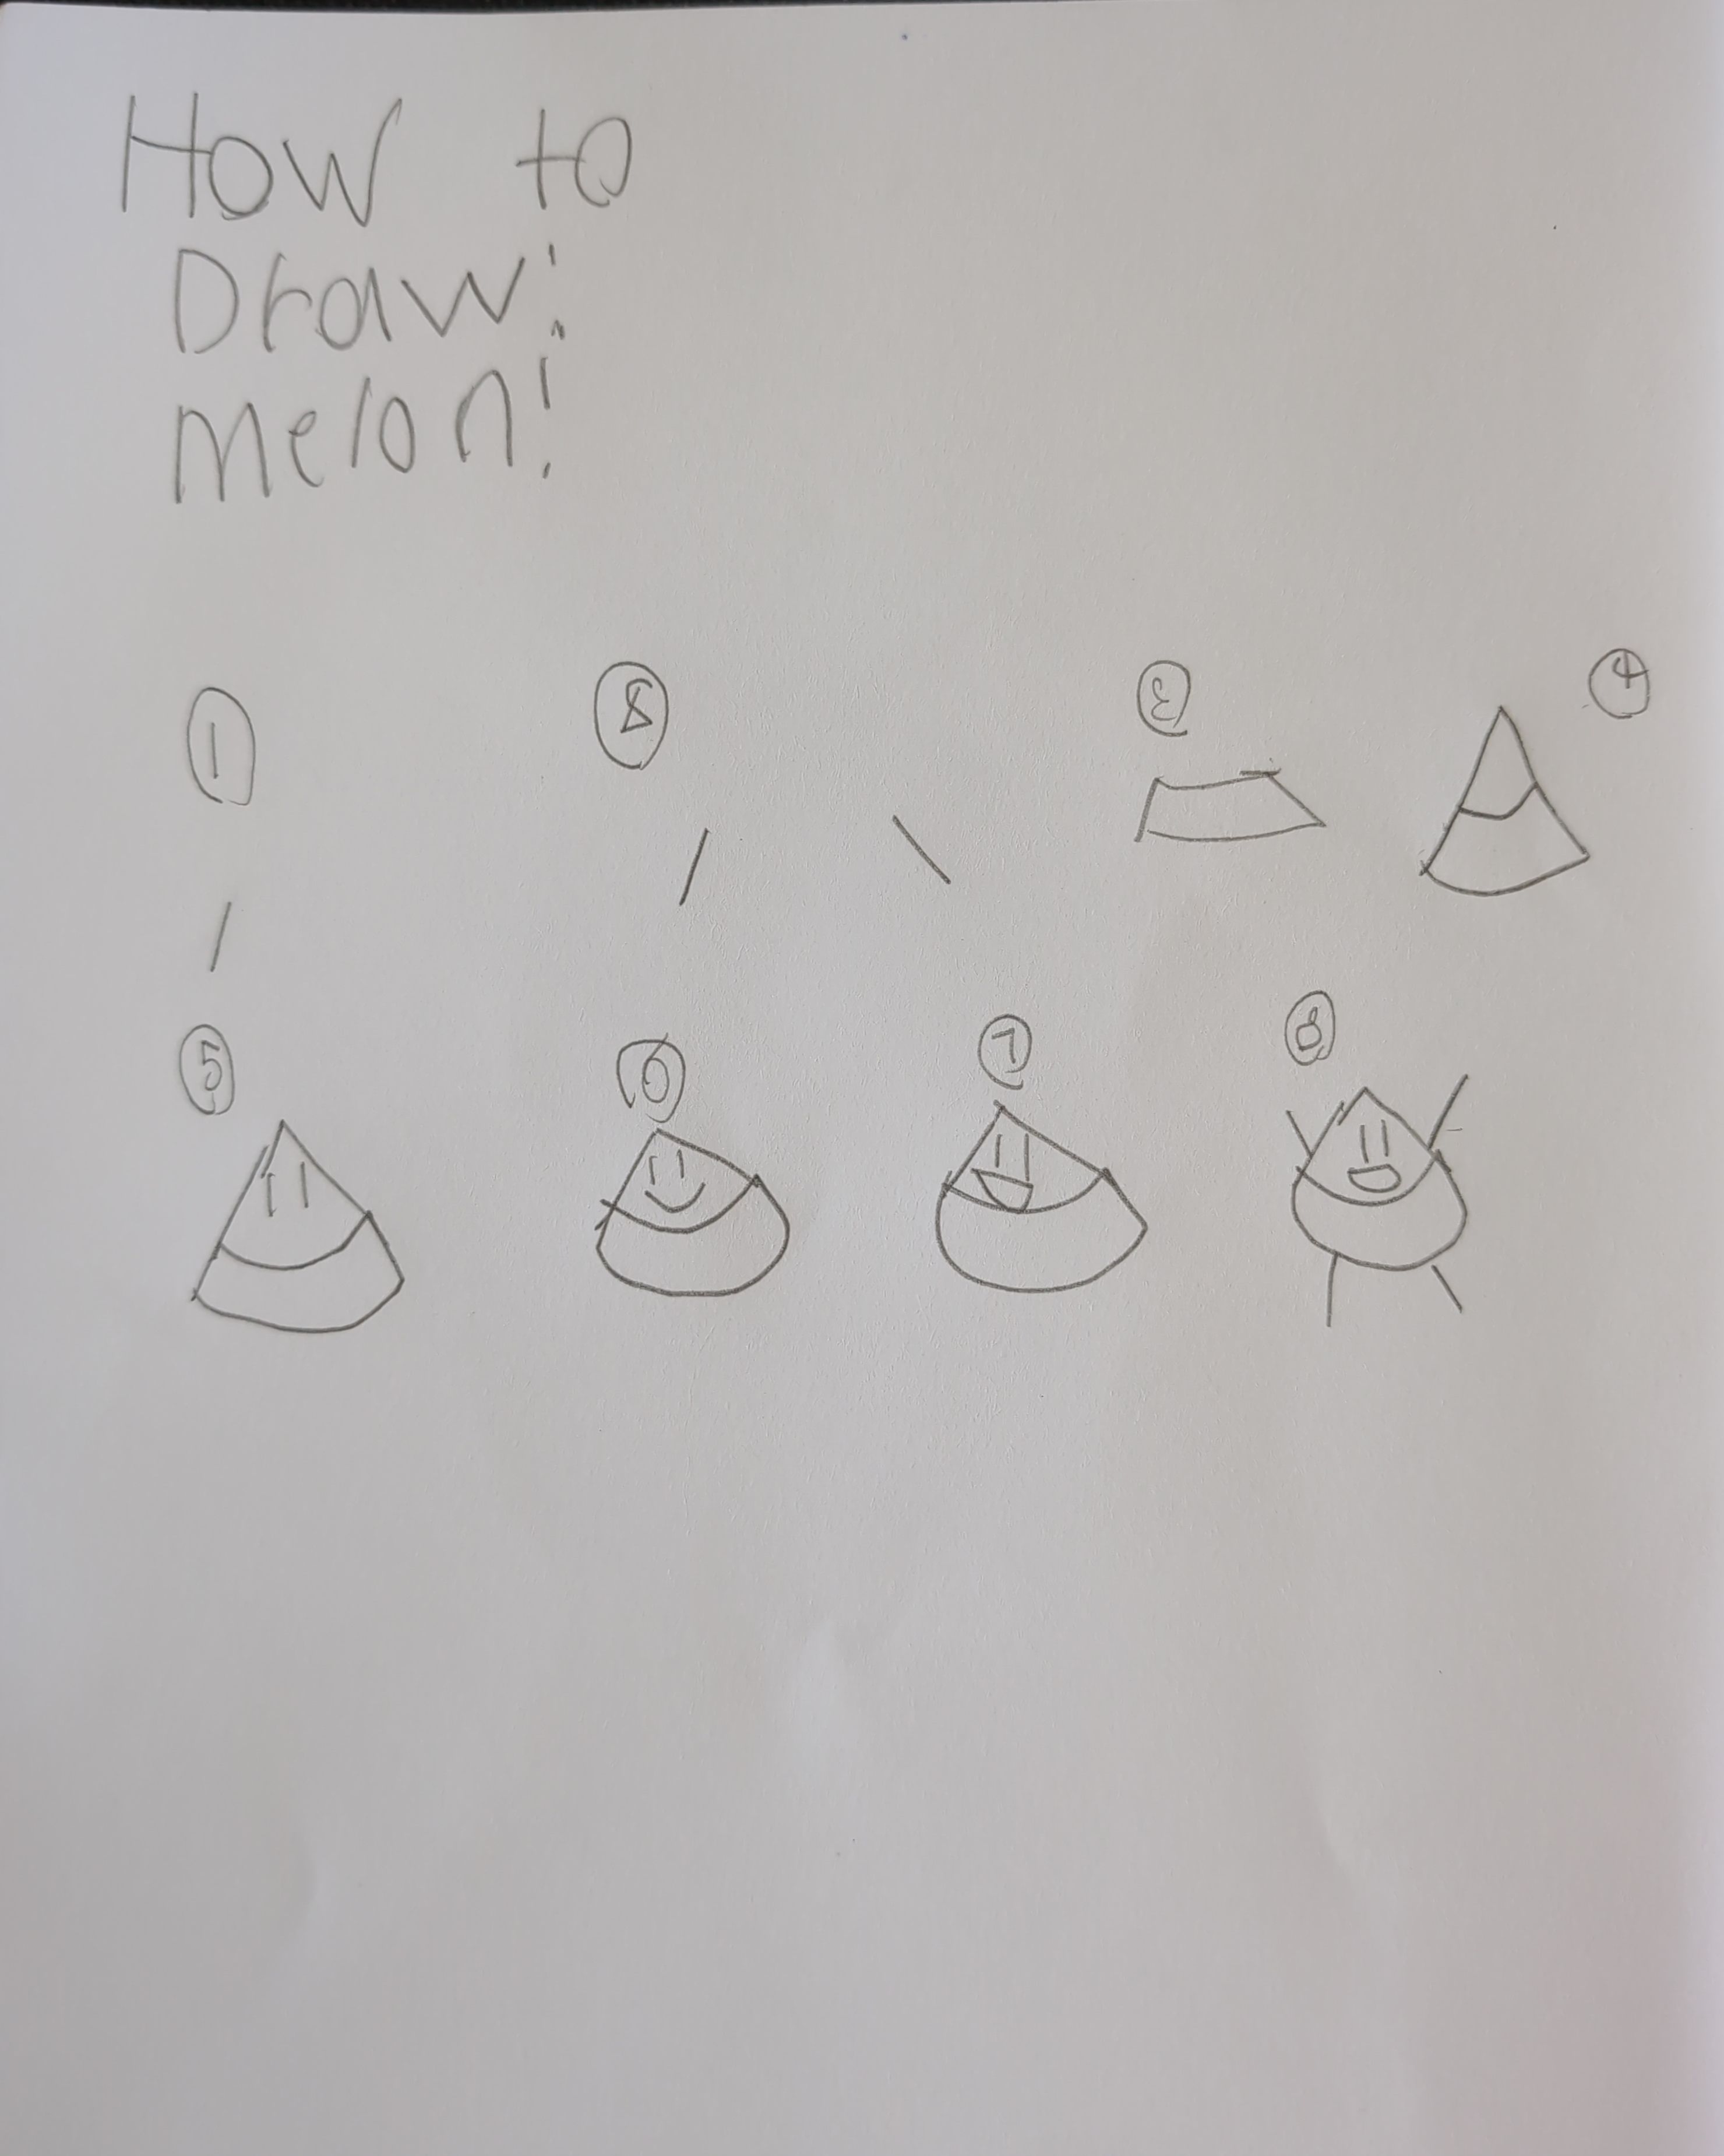 How to
Draw:
Melon!
1 8 3 4
5 6 7 8